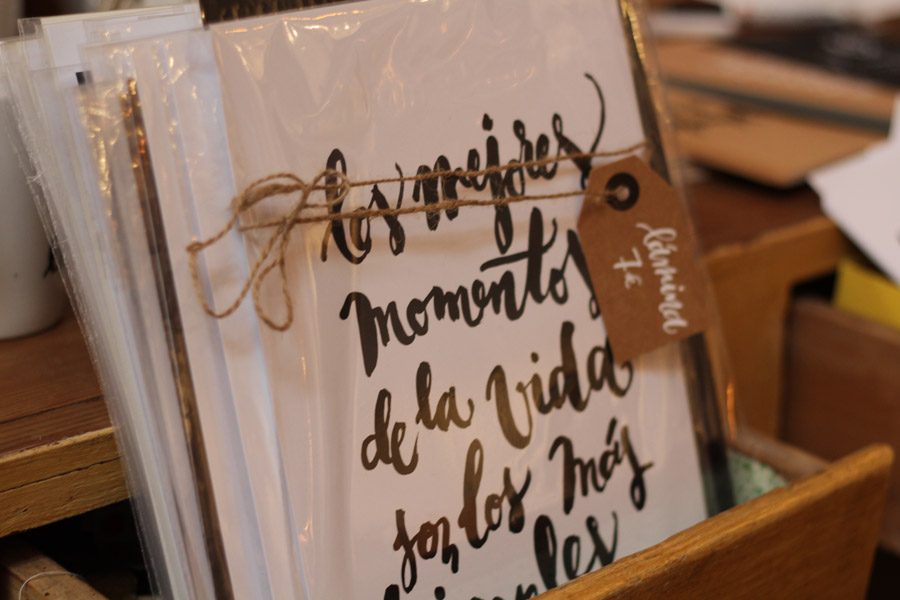 los mejores
momentos
de la vida
son los más
simples
lámina
7€